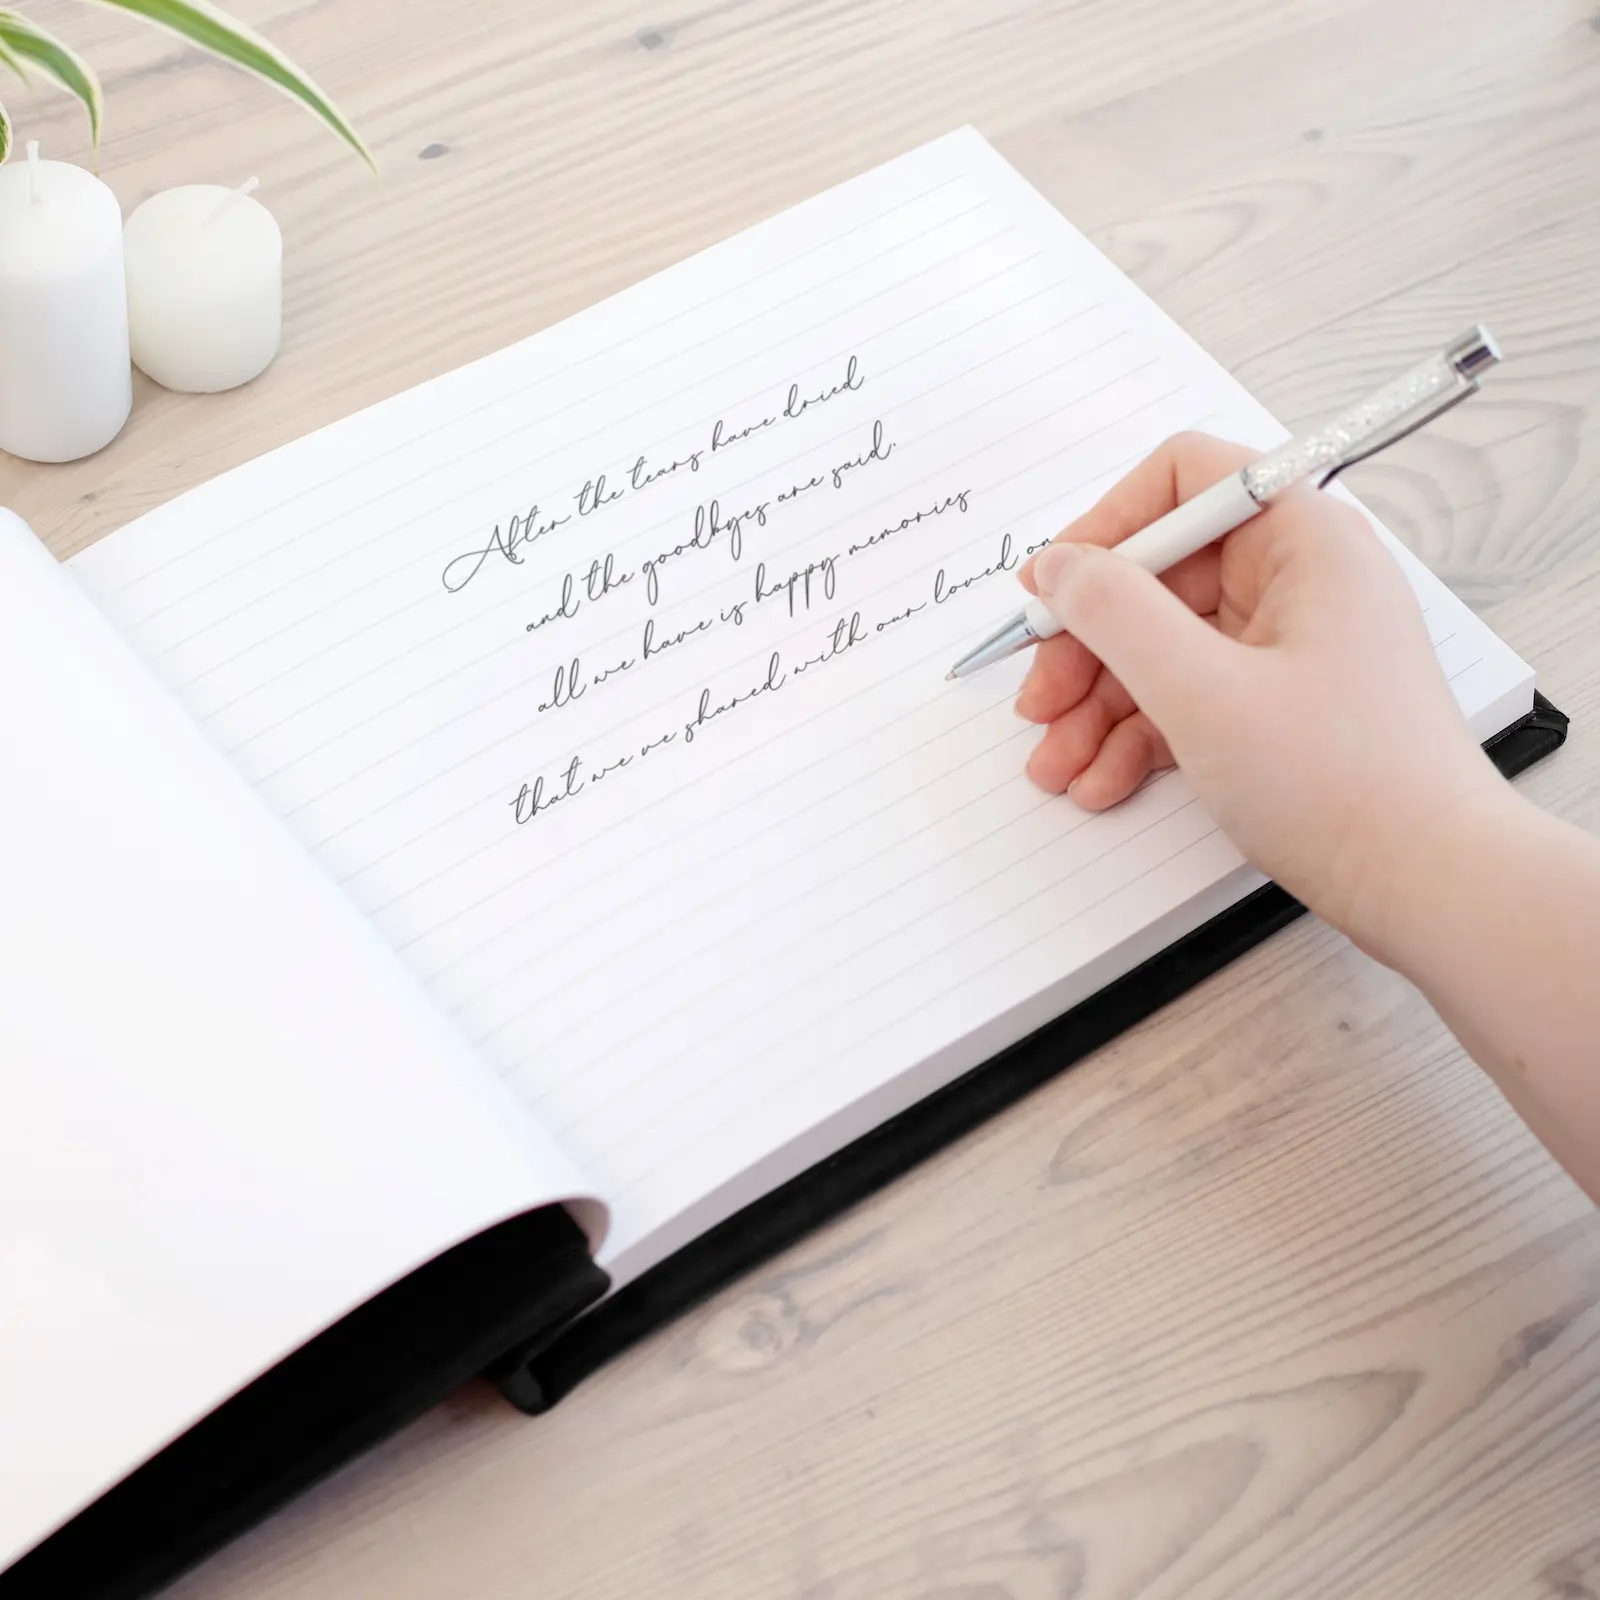 After the tears have dried
and the goodbyes are said.
all we have is happy memories
that we ve shared with our loved on